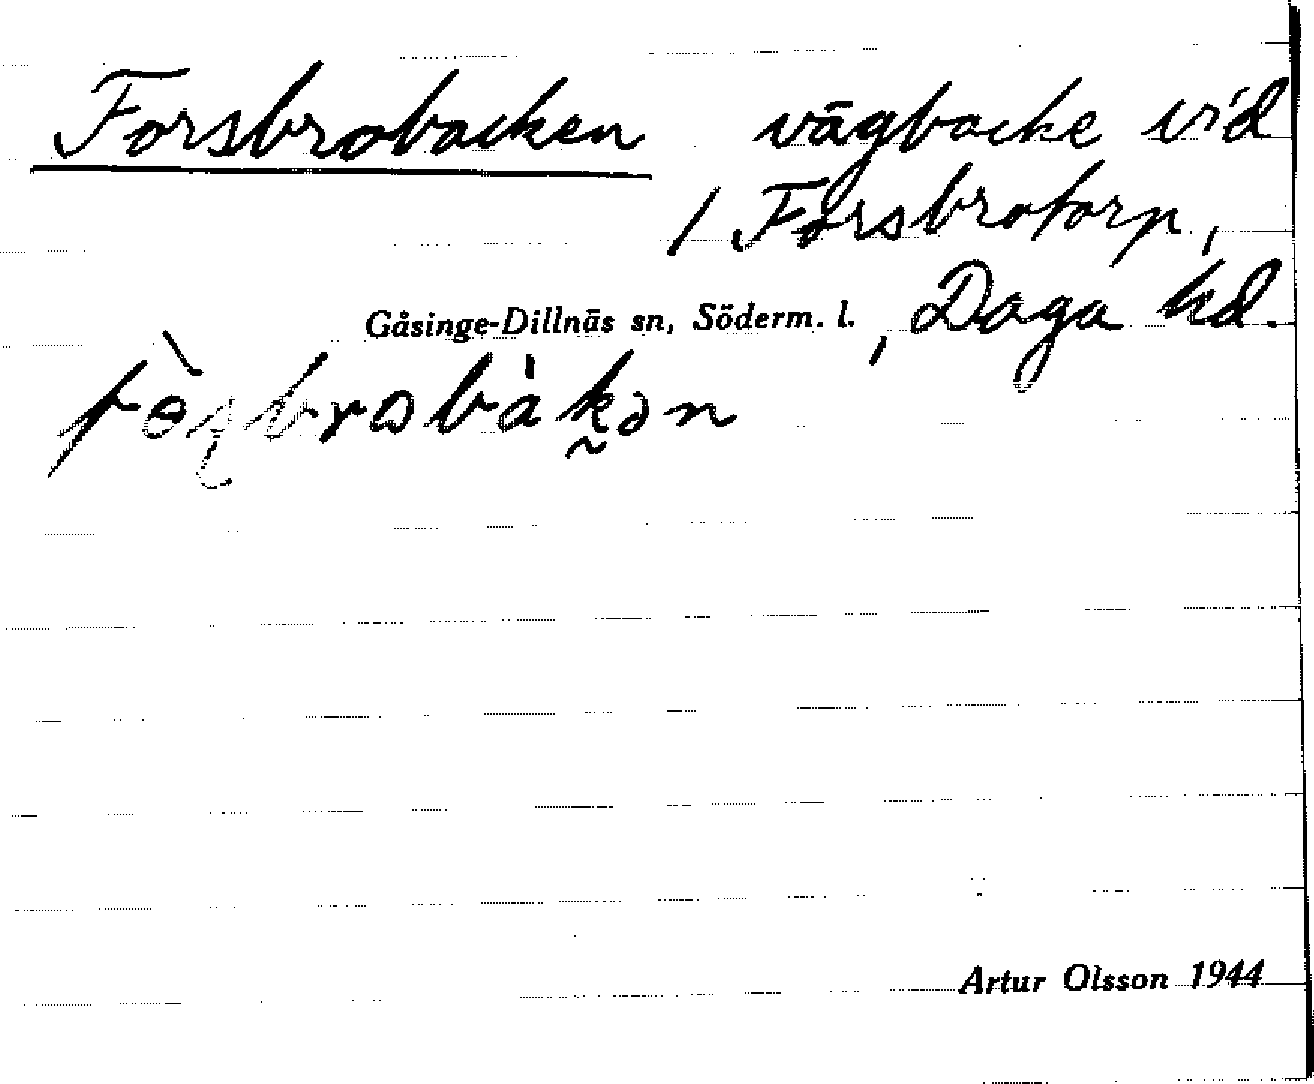 Forsbrobacken vägbacke vid
/ Forsbrotorp,
Gåsinge-Dillnäs sn, Söderm. l. , Daga hd.
Artur Olsson 1944